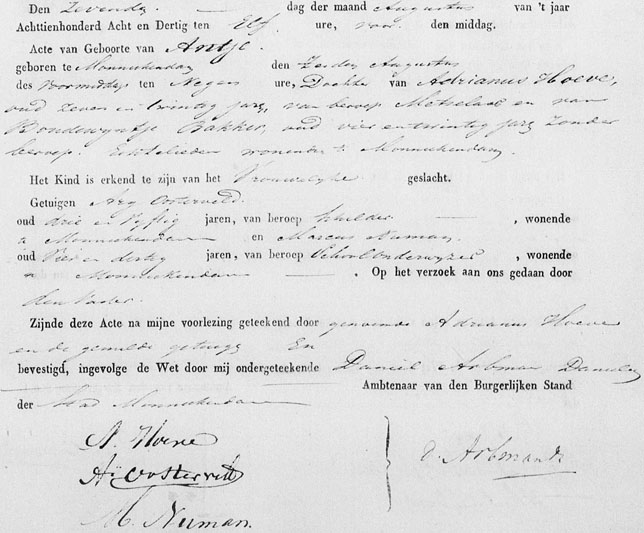 Den Zevende dag der maand Augustus van 't jaar
Achttienhonderd Acht en Dertig ten Elf ure, voor den middag.
Acte van Geboorte van Antje.
geboren te Monnickendam den Zesden Augustus
des voormiddags ten Negen ure, Dochter van Adrianus Hoeve,
oud zeven en twintig jaren, van beroep Metselaar en van
Boudewyntje Bakker, oud vier en twintig jaren zonder
beroep. Echtelieden wonende te Monnickendam.
Het Kind is erkend te zijn van het Vrouwelyke geslacht.
Getuigen Ary Oosterveld.
oud drie en vyftig jaren, van beroep schilder , wonende
a Monnickendam en Marcus Numan.
oud Vier en dertig jaren, van beroep Schoolonderwyzer , wonende
a Monnickendam . Op het verzoek aan ons gedaan door
den Vader.
Zijnde deze Acte na mijne voorlezing geteekend door genoemde Adrianus Hoeve
en de gemelde getuigen En
bevestigd, ingevolge de Wet door mij ondergeteekende Daniel Arbman
Ambtenaar van den Burgerlijken Stand
der Stad Monnickendam
A. Hoeve
Ay Oosterveld
M. Numan.